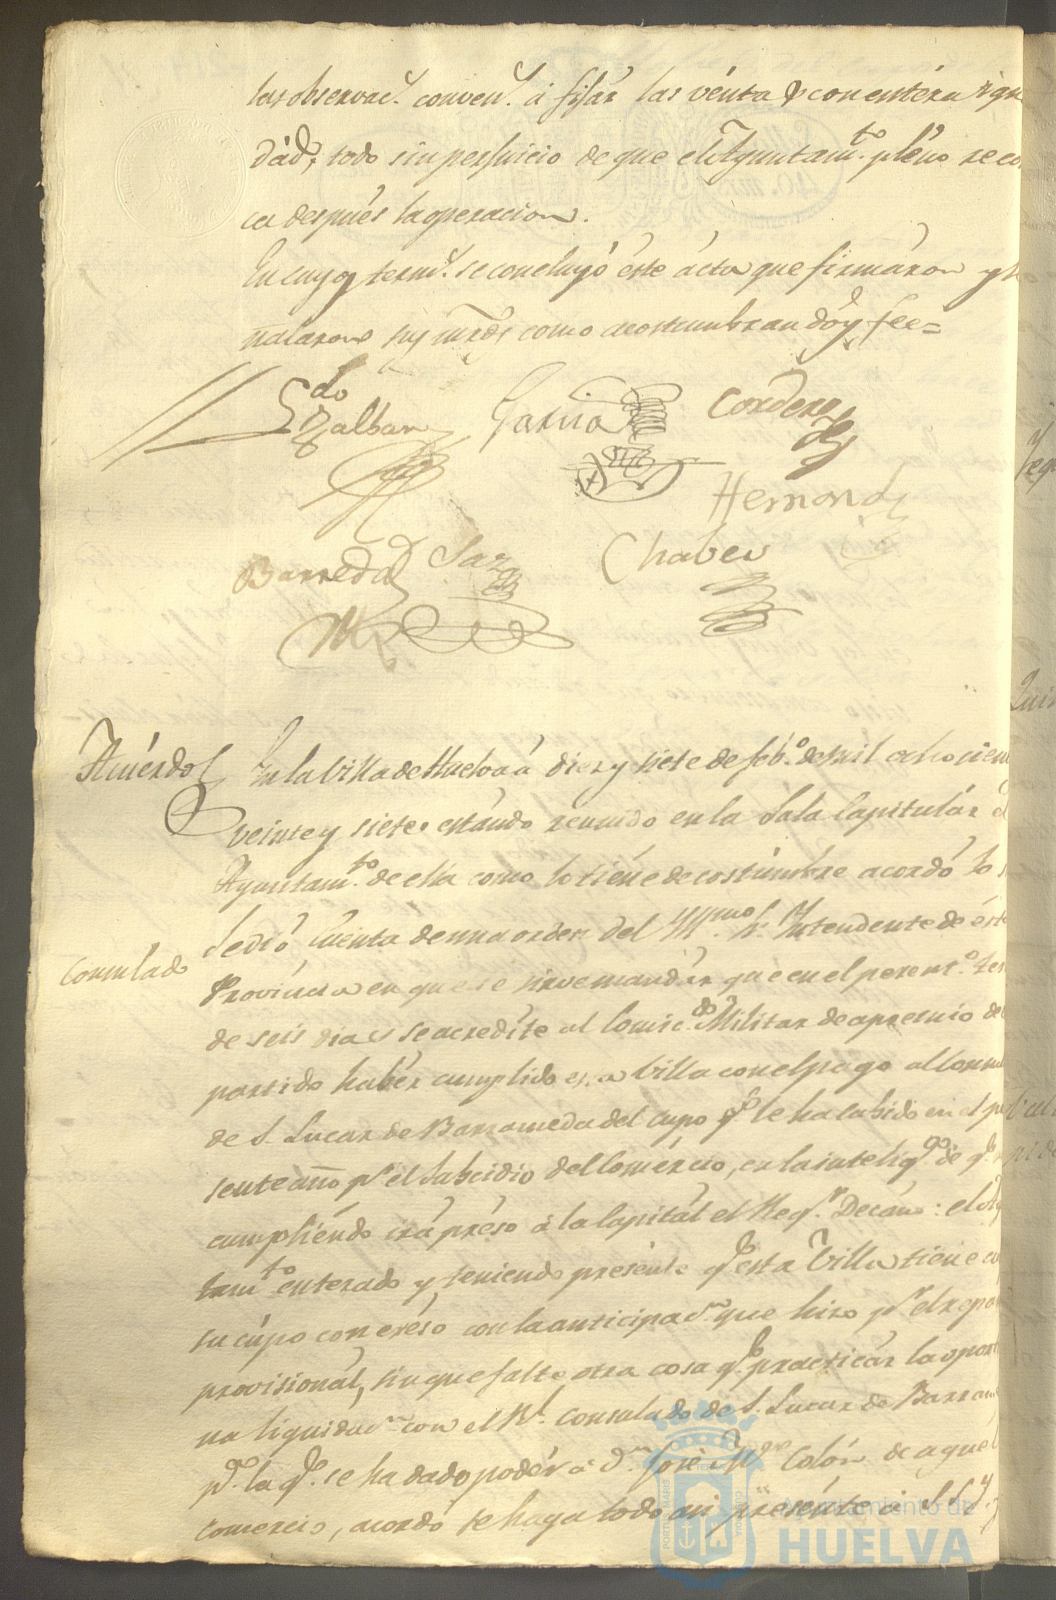 las observac.s conven.s á fijár las vénta y con entéra rigu
dád, todo sin perjuicio de que el Ayuntam.to pléno reco
ca después la operacion.
En cuyos term.s se concluyó éste ácta que firmáron y
ñalaron sus mrds como acostumbran dóy fee=
Ldo
Zalbar
Garcia
Cordero
Hernand
Barreda
Saz
Chabes
Acuérdo
En la Villa de Huelva á diez y siete de feb.o de mil ochocien
veinte y siete estándo reunido en la Sála Capitulár el
Ayuntam.to de ella como lo tiéne de costúmbre acordó lo s
Consulado
Se dió cuénta de una orden del Yll.mo Sr. Yntendente de ésta
Província en que se sirve mandár que en el perent.o ter
de seis dias se acredíte al Comic.do Militar de apremio del
partido habér cumplido esa Villa con el pago al Consu
de S. Lucar de Barrameda del cupo q.e le ha cabido en el pr
sente año p.r el Subcidio del Comércio, en la intelig.a de q.e n
cumpliéndo irá préso á la Capitál el Reg.r Decáno: el Ay
tam.to enterado y teniendo presénte q.e esta Villa tiene cu
su cúpo con eséso con la anticipac.n que hizo p.r el repar
provisionál, sin que falte otra cosa q.e practicár la oport
na liquidac.n con el R.l Consulado de S. Lucar de Barram
p.a la q.e se ha dado podér á D.n José M.a Colón de aquel
comercio, acordó se haga todo asi presénte á S. S.
Ayuntamiento de
HUELVA